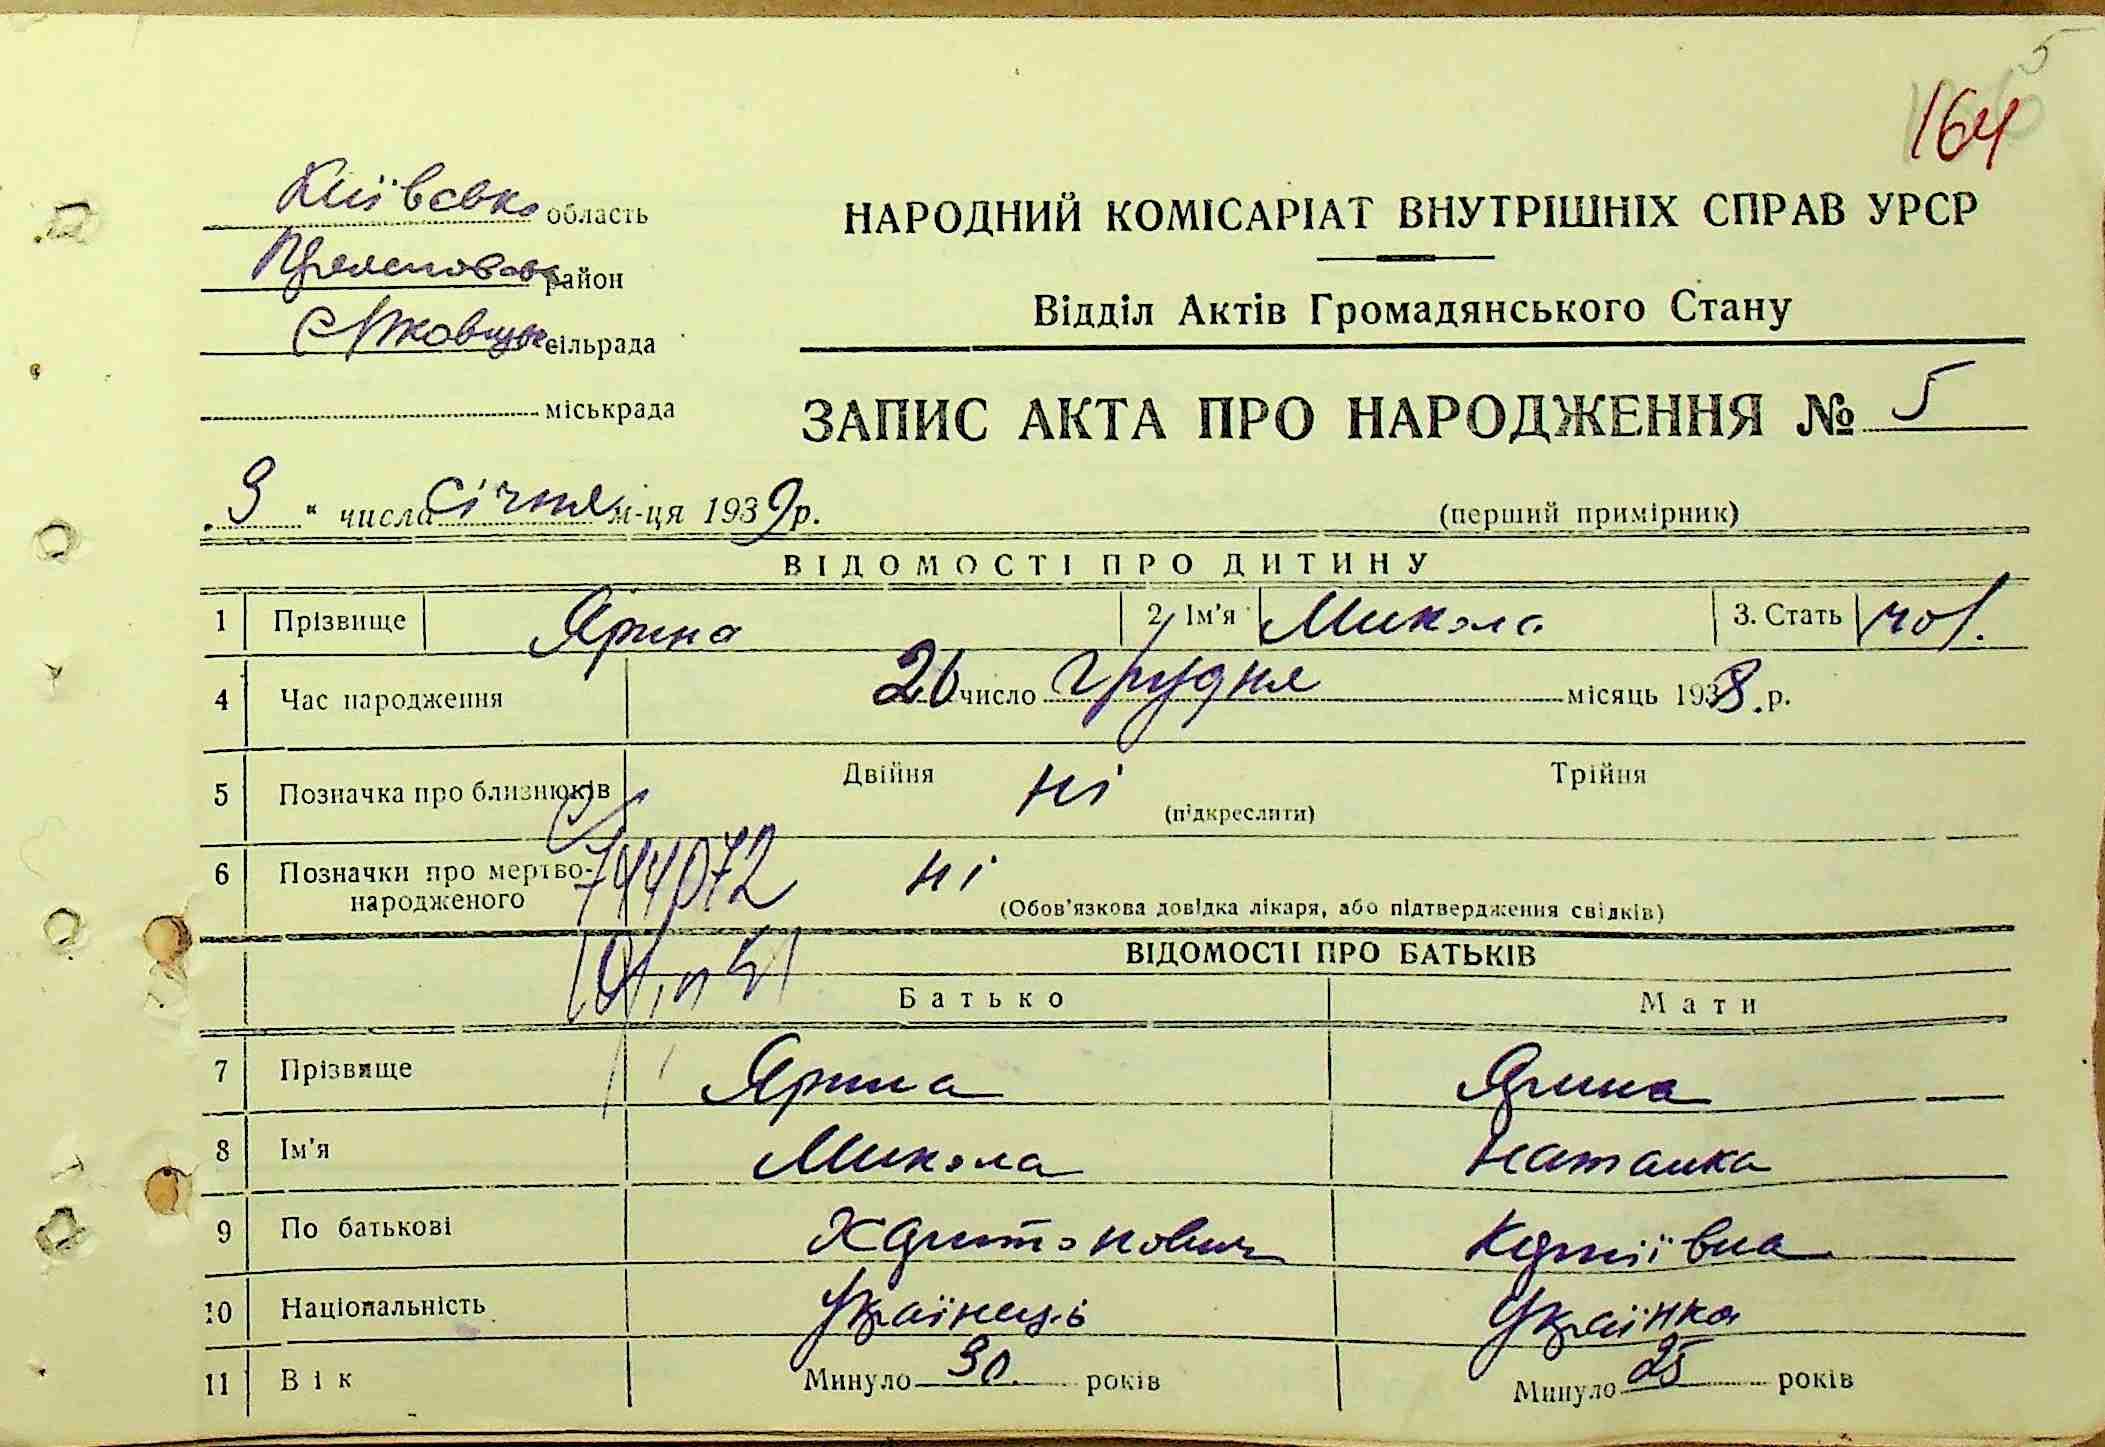 5
164
Київсько область
район
сільрада
міськрада
НАРОДНИЙ КОМІСАРІАТ ВНУТРІШНІХ СПРАВ УРСР
Відділ Актів Громадянського Стану
ЗАПИС АКТА ПРО НАРОДЖЕННЯ № 5
„9“ числа січня м-ця 1939 р.
(перший примірник)
ВІДОМОСТІ ПРО ДИТИНУ
1 Прізвище Ярина 2. Ім'я Микола 3. Стать чол.
4 Час народження 26 число грудня місяць 1938 р.
5 Позначка про близнюків Двійня ні Трійня
(підкреслити)
6 Позначки про мертво-народженого ні
(Обов'язкова довідка лікаря, або підтвердження свідків)
744072
ВІДОМОСТІ ПРО БАТЬКІВ
Батько Мати
7 Прізвище Ярина Ярина
8 Ім'я Микола Наталка
9 По батькові Харитонович Юріївна
10 Національність Українець Українка
11 Вік Минуло 30 років Минуло 25 років